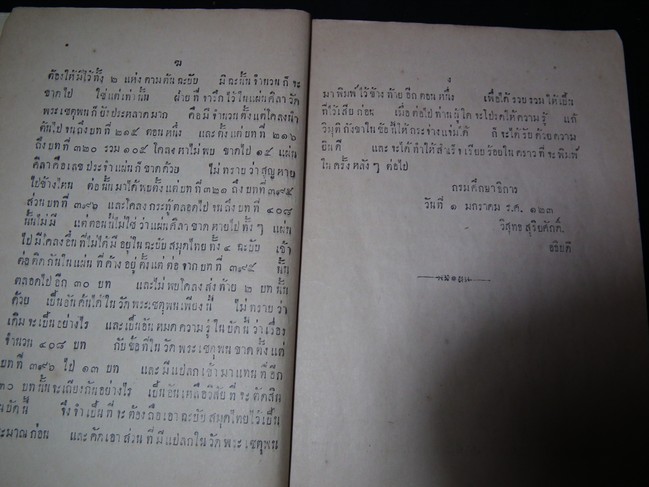 ฆ
ต้องให้มีไว้ทั้ง ๒ แห่ง ตามต้นฉะบับ มิฉะนั้นจำนวนก็จะ
ขาดไป ใช่แต่เท่านั้น ฝ่ายที่จารึกไว้ในแผ่นศิลาวัด
พระเชตุพนก็ยังประหลาดมาก คือมีจำนวนตั้งแต่โคลงนำ
ต้นไปจนถึงบทที่ ๒๑๕ ตอนหนึ่ง และตั้งแต่บทที่ ๒๑๖
ถึงบทที่ ๓๒๐ รวม ๑๐๕ โคลงหาไม่พบ ขาดไป ๑๕ แผ่น
ศิลา คือเลขประจำแผ่นก็ขาดด้วย ไม่ทราบว่าสูญหาย
ไปข้างไหน ต่อนั้นมาได้พบตั้งแต่บทที่ ๓๒๐ ถึงบทที่ ๓๙๕
ส่วนบทที่ ๓๙๖ และโคลงกระทู้ตลอดไปจนถึงบทที่ ๔๐๘
นั้นไม่มี แต่ตอนนี้ไม่ใช่ว่าแผ่นศิลาขาดหายไปทั้ง ๆ แผ่น
ไปมีโคลงอื่นที่ไม่ได้มีอยู่ในฉะบับสมุดไทยทั้ง ๔ ฉะบับ เข้า
ต่อติดกันในแผ่นที่ค้างอยู่ตั้งแต่ต่อจากบทที่ ๓๙๕ นั้น
ตลอดไปอีก ๓๐ บท และไม่พบโคลงส่งท้าย ๒ บทนั้น
ด้วย เป็นอันต้นได้ในวัดพระเชตุพนเพียงนี้ ไม่ทราบว่า
เดิมจะเป็นอย่างไร และเป็นอันหมดความรู้ในบัดนี้ ว่าเรื่อง
จำนวน ๔๐๘ บท กับข้อที่ในวัดพระเชตุพนขาดตั้งแต่
บทที่ ๓๙๖ ไป ๑๓ บท และมีแปลกเข้ามาแทนที่อีก
๓๐ บทนั้นจะเถียงกันอย่างไร เป็นอันเหลือวิสัยที่จะตัดสิน
ในบัดนี้ จึงจำเป็นที่จะต้องถือเอาฉะบับสมุดไทยไว้เป็น
ประมาณก่อน และคัดเอาส่วนที่มีแปลกในวัดพระเชตุพน
ง
มาพิมพ์ไว้ข้างท้ายอีกตอนหนึ่ง เพื่อให้รวบรวมให้เป็น
ที่ไว้เสียก่อน เมื่อต่อไปท่านผู้ใดจะโปรดให้ความรู้ แก้
วิมุติกังขาในข้อนี้ให้กระจ่างแจ้งได้ ก็จะได้รับด้วยความ
ยินดี และจะได้ทำให้สำเร็จเรียบร้อยในคราวที่จะพิมพ์
ในครั้งหลังๆ ต่อไป
กรมศึกษาธิการ
วันที่ ๑ มกราคม ร.ศ. ๑๒๓
วิสุทธสุริยศักดิ์
อธิบดี